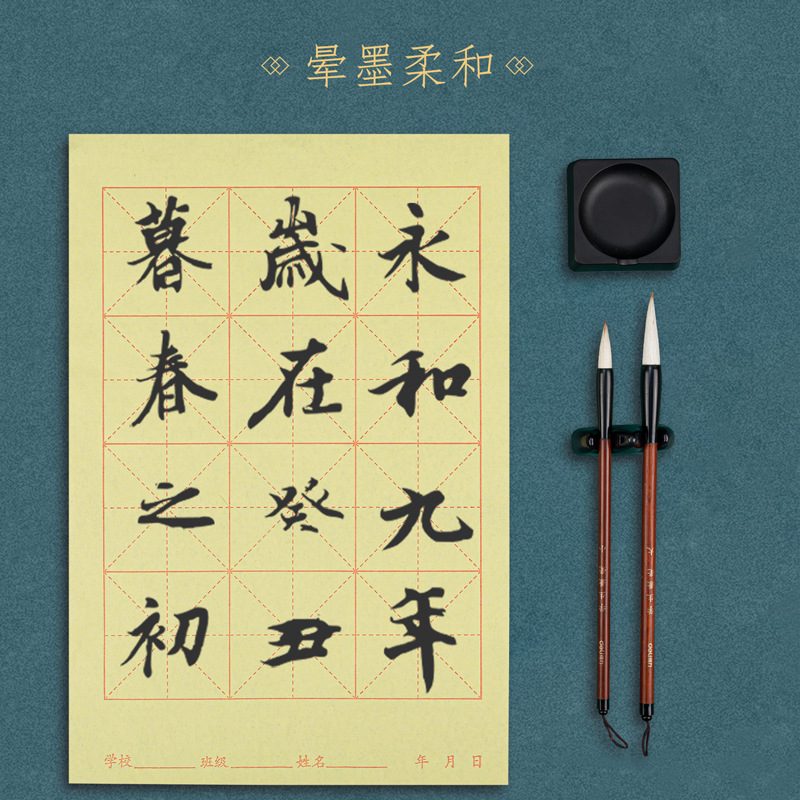 晕墨柔和
永和九年
歲在癸丑
暮春之初
学校 班级 姓名 年 月 日
deli